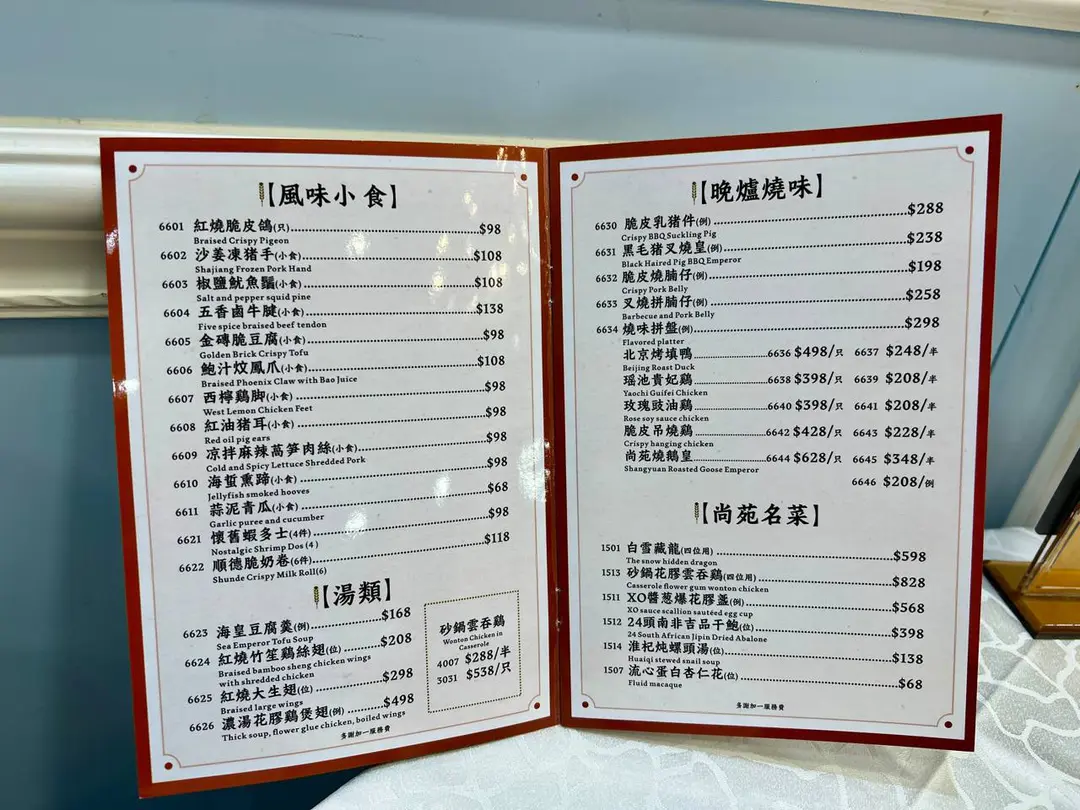 【風味小食】
6601 紅燒脆皮鴿(只) $98
Braised Crispy Pigeon
6602 沙姜凍猪手(小食) $108
Shajiang Frozen Pork Hand
6603 椒鹽魷魚鬚(小食) $108
Salt and pepper squid pine
6604 五香鹵牛腱(小食) $138
Five spice braised beef tendon
6605 金磚脆豆腐(小食) $98
Golden Brick Crispy Tofu
6606 鮑汁炆鳳爪(小食) $108
Braised Phoenix Claw with Bao Juice
6607 西檸鷄脚(小食) $98
West Lemon Chicken Feet
6608 紅油猪耳(小食) $98
Red oil pig ears
6609 凉拌麻辣萵笋肉絲(小食) $98
Cold and Spicy Lettuce Shredded Pork
6610 海蜇熏蹄(小食) $98
Jellyfish smoked hooves
6611 蒜泥青瓜(小食) $68
Garlic puree and cucumber
6621 懷舊蝦多士(4件) $98
Nostalgic Shrimp Dos (4)
6622 順德脆奶卷(6件) $118
Shunde Crispy Milk Roll(6)
【湯類】
6623 海皇豆腐羹(例) $168
Sea Emperor Tofu Soup
6624 紅燒竹笙鷄絲翅(位) $208
Braised bamboo sheng chicken wings
with shredded chicken
6625 紅燒大生翅(位) $298
Braised large wings
6626 濃湯花膠鷄煲翅(例) $498
Thick soup, flower glue chicken, boiled wings
砂鍋雲吞鷄
Wonton Chicken in
Casserole
4007 $288/半
3031 $538/只
多謝加一服務費
【晚爐燒味】
6630 脆皮乳猪件(例) $288
Crispy BBQ Suckling Pig
6631 黑毛猪叉燒皇(例) $238
Black Haired Pig BBQ Emperor
6632 脆皮燒腩仔(例) $198
Crispy Pork Belly
6633 叉燒拼腩仔(例) $258
Barbecue and Pork Belly
6634 燒味拼盤(例) $298
Flavored platter
北京烤填鴨 6636 $498/只 6637 $248/半
Beijing Roast Duck
瑶池貴妃鷄 6638 $398/只 6639 $208/半
Yaochi Guifei Chicken
玫瑰豉油鷄 6640 $398/只 6641 $208/半
Rose soy sauce chicken
脆皮吊燒鷄 6642 $428/只 6643 $228/半
Crispy hanging chicken
尚苑燒鵝皇 6644 $628/只 6645 $348/半
Shangyuan Roasted Goose Emperor
6646 $208/例
【尚苑名菜】
1501 白雪藏龍(四位用) $598
The snow hidden dragon
1513 砂鍋花膠雲吞鷄(四位用) $828
Casserole flower gum wonton chicken
1511 XO醬葱爆花膠盞(例) $568
XO sauce scallion sautéed egg cup
1512 24頭南非吉品干鮑(位) $398
24 South African Jipin Dried Abalone
1514 淮杞炖螺頭湯(位) $138
Huaiqi stewed snail soup
1507 流心蛋白杏仁花(位) $68
Fluid macaque
多謝加一服務費